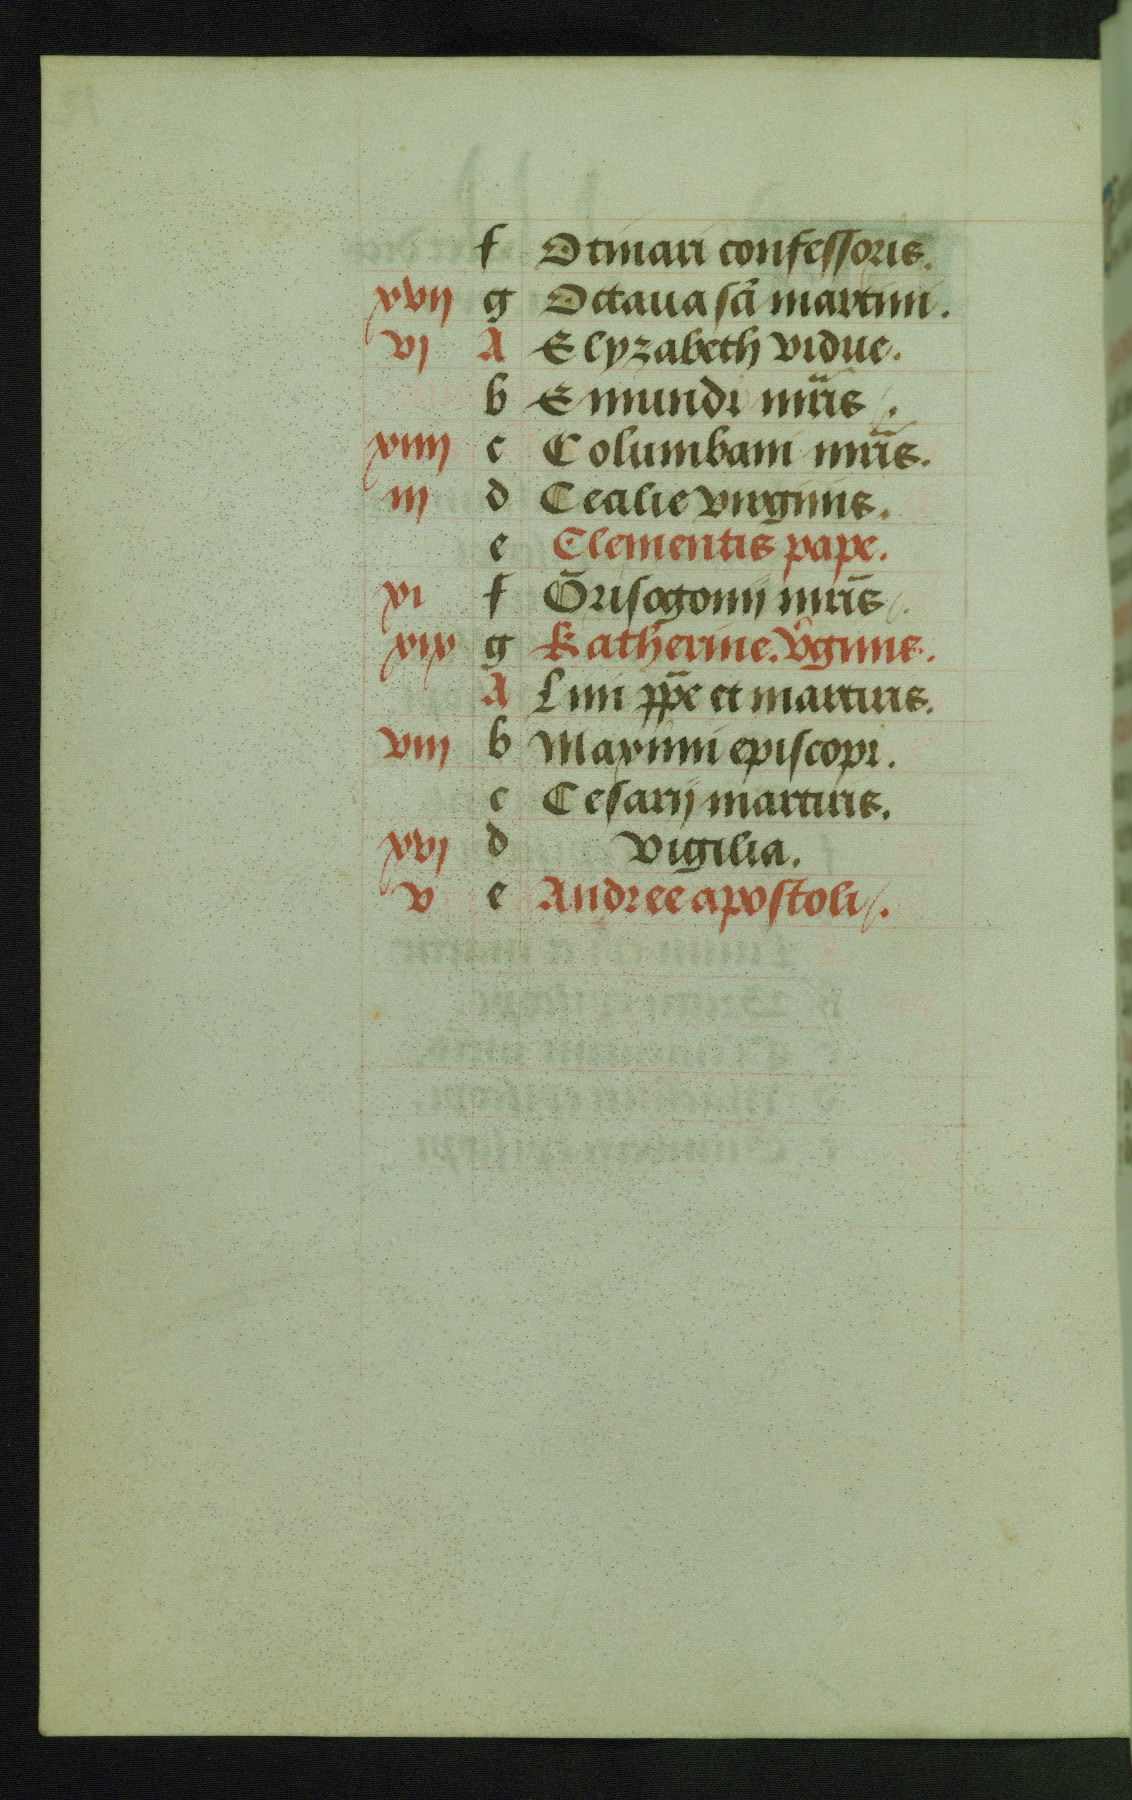 f Otmari confessoris.
xvij g Octaua sci̅ martini.
vj A Elyzabeth vidue.
b Emundi mr̅is.
xiiij c Columbani mr̅is.
iij d Cecilie virginis.
e Clementis pape.
xi f Grisogonij mr̅is.
xix g Katherine. v̅ginis.
A Lini pp̅e et martiris.
viij b Maximi episcopi.
c Cesarij martiris.
xvj d Vigilia.
v e Andree apostoli.